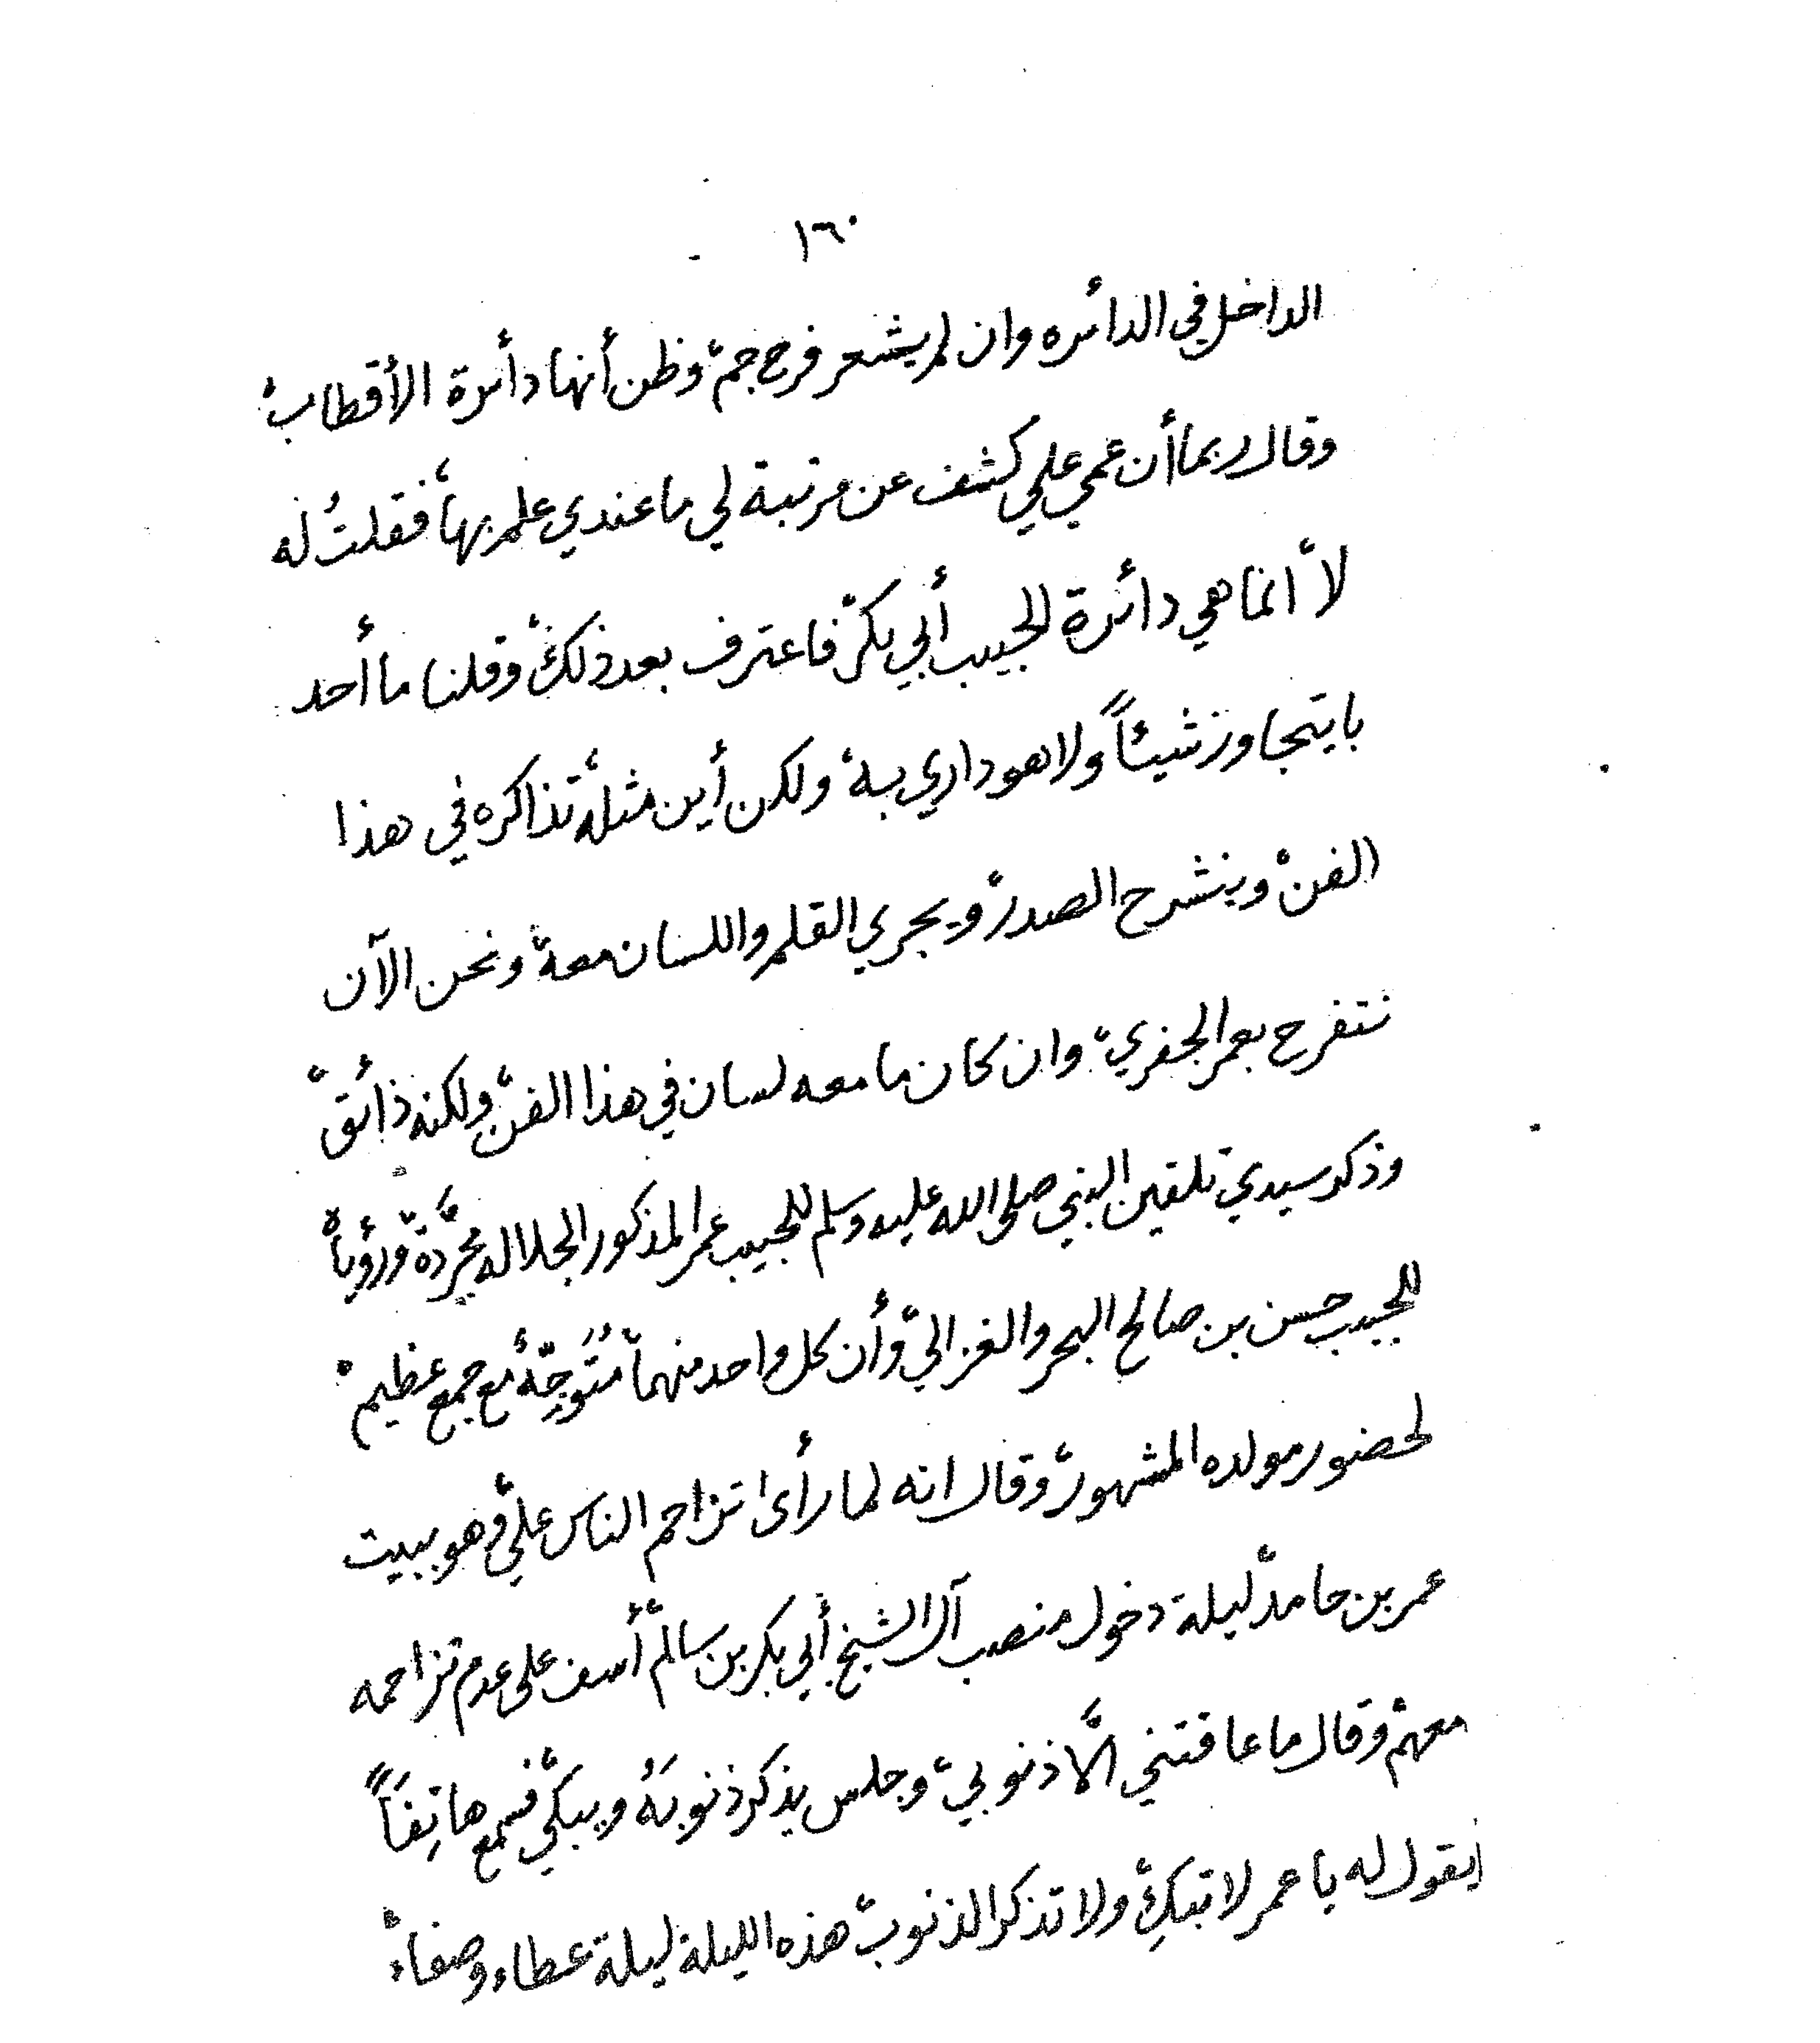 ١٦٠
الداخل في الدائره وان لم يشعر فرح جم، وظن أنها دائرة الأقطاب،
وقال ربما أن عمي علي كشف عن مرتبة لي ما عندي علم بها، فقلتُ له
لا، انما هي دائرة الحبيب أبي بكر، فاعترف بعد ذلك، وقلنا ما أحد
بايتجاوز شيئاً ولا هو داري به، ولكن أين مثله، تذاكره في هذا
الفن، وينشرح الصدر، ويجري القلم واللسان معه، ونحن الآن
نتفرح بعمر الجفري، وان كان ما معه لسان في هذا الفن، ولكنه ذائق،
وذكر سيدي تلقين النبي صلى الله عليه وسلم للحبيب عمر المذكور الجلاله مجرَّدة، ورؤياه
للحبيب حسن بن صالح البحر والغزالي، وأن كل واحد منهما، مُتُوجِّهٌ مع جمع عظيم،
لحضور مولده المشهور، وقال انه لما رأى تزاحم الناس علي، وهو ببيت
عمر بن حامد، ليلة دخول منصب آل الشيخ أبي بكر بن سالم، أسف على عدم تزاحمه
معهم، وقال ما عاقتني الَّا ذنوبي، وجلس يذكر ذنوبهُ ويبكي، فسمع هاتِفَاً
يقول له يا عمر لا تبكِ، ولا تذكر الذنوب، هذه الليلة ليلة عطاء وصفاء،